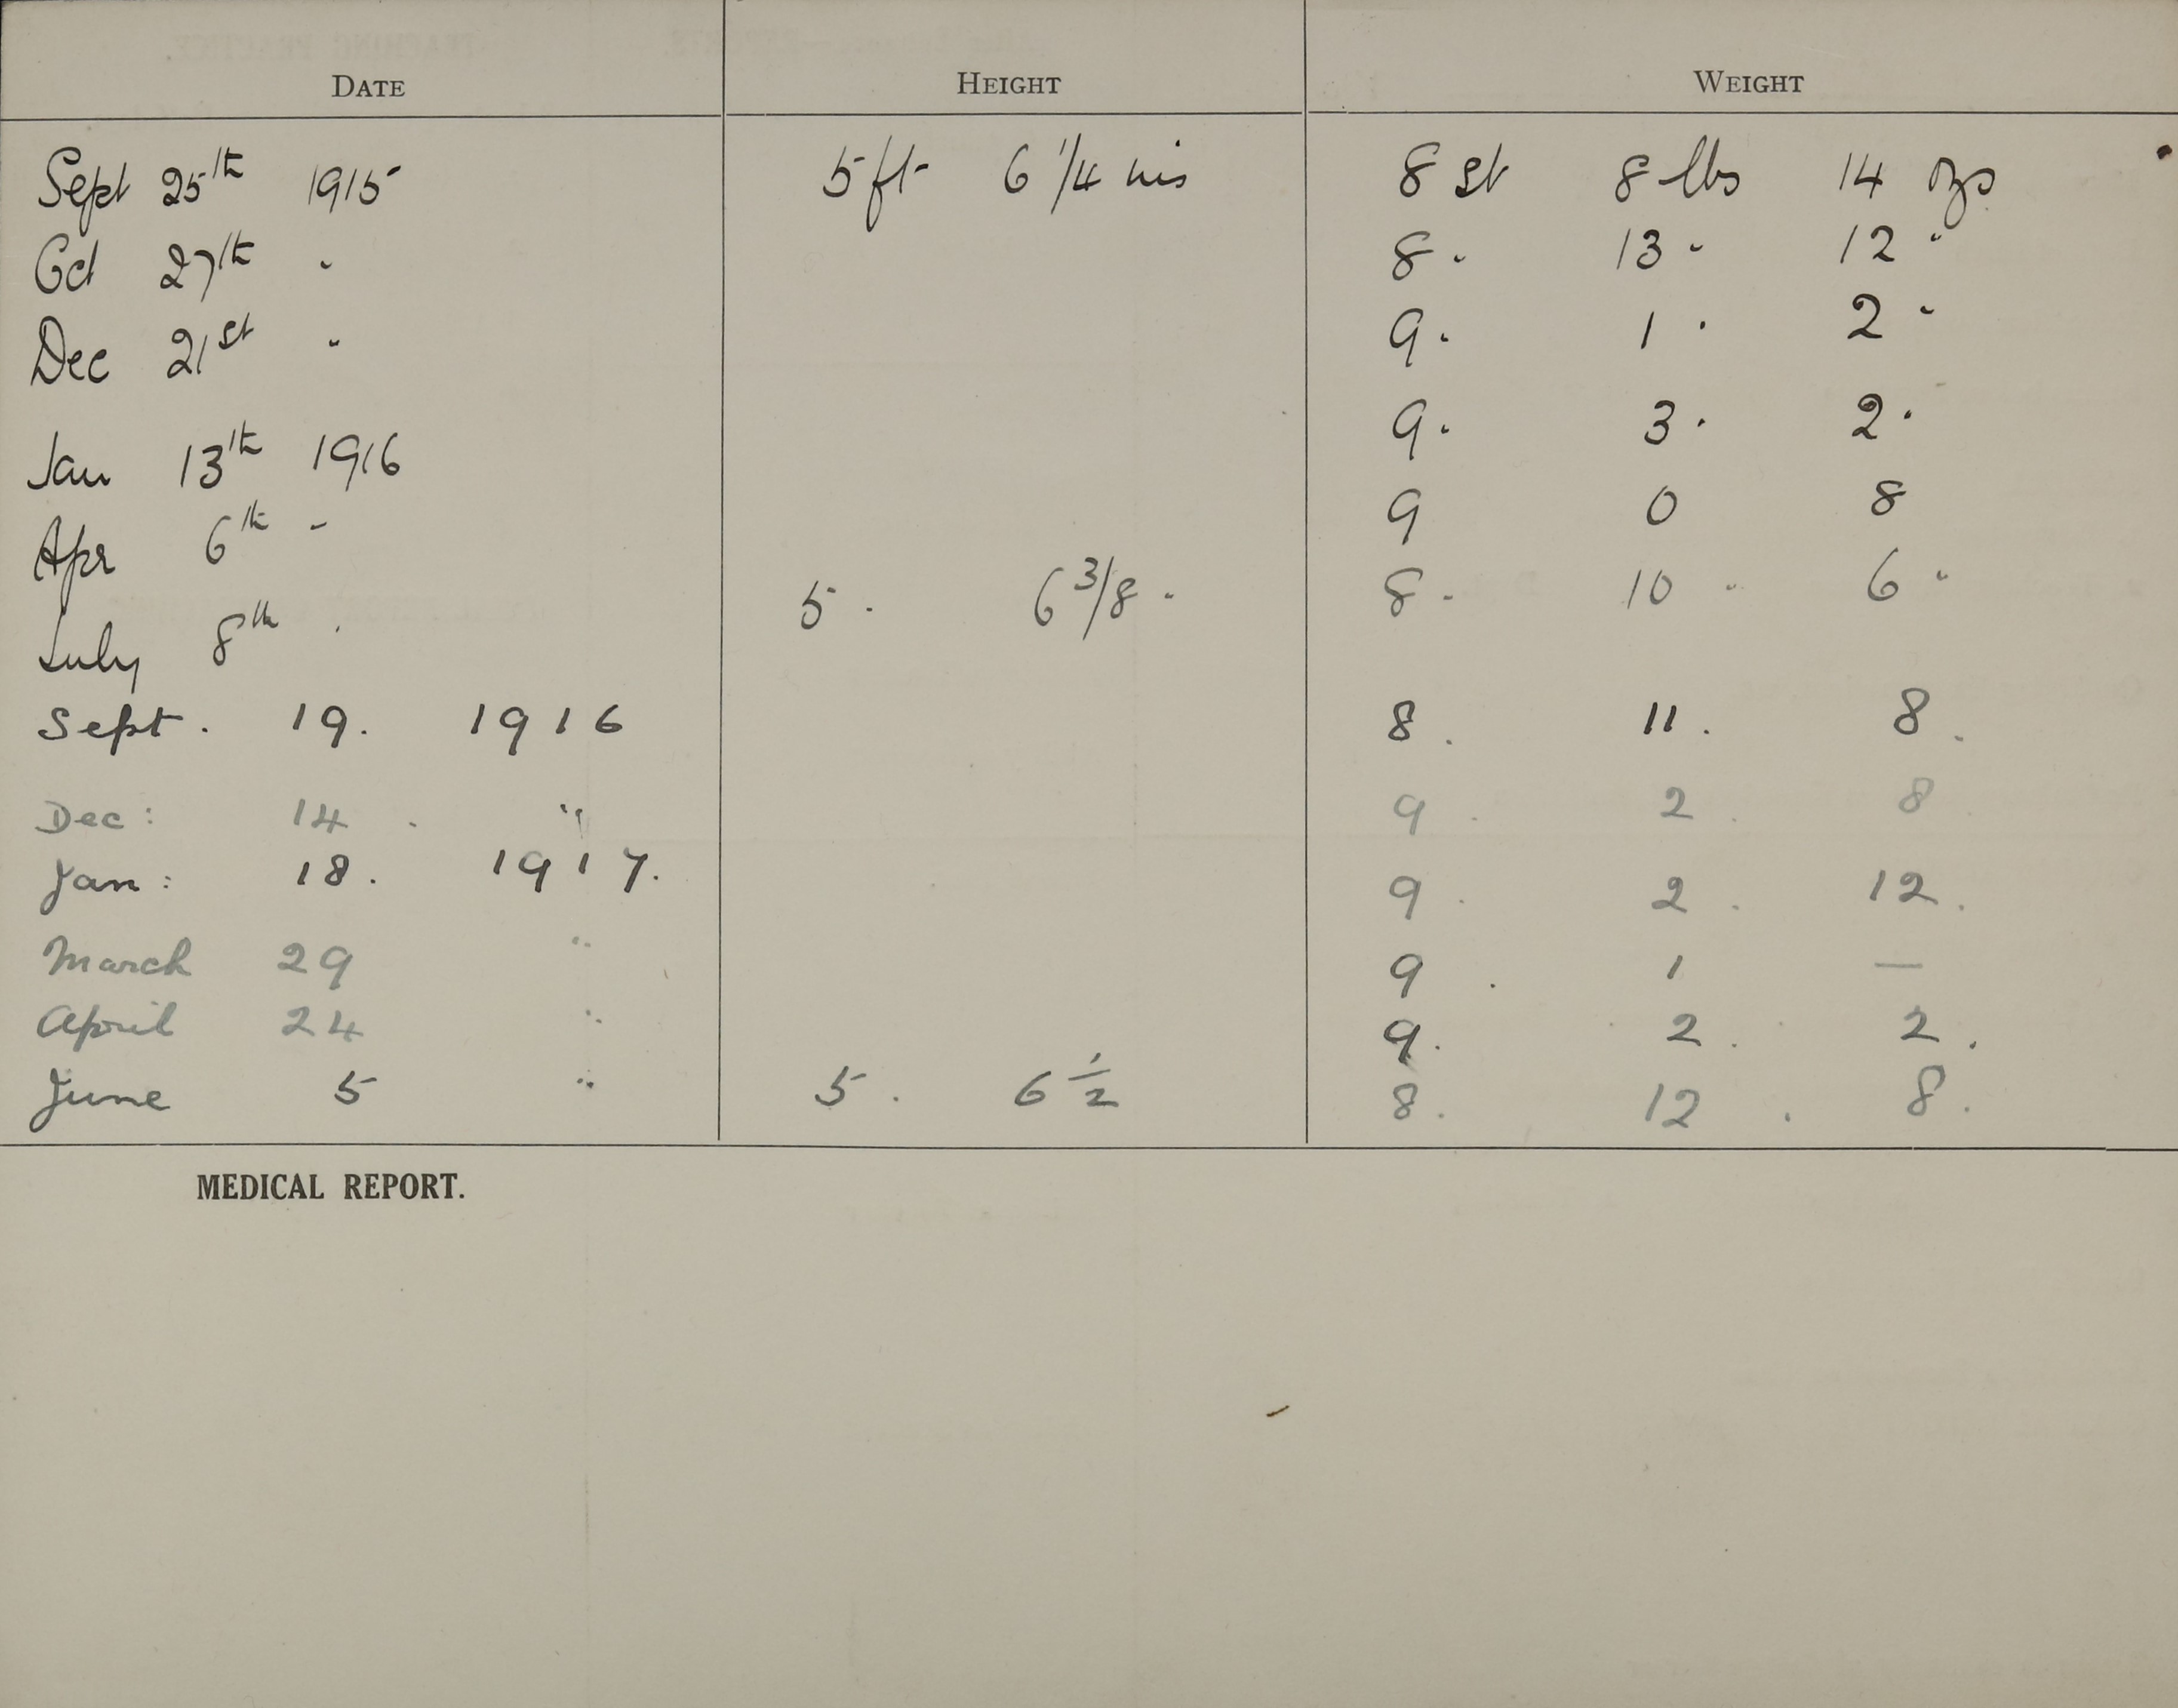 DATE HEIGHT WEIGHT
Sept 25th 1915 5 ft 6 1/4 ins 8 st 8 lbs 14 ozs
Oct 27th " 8 " 13 " 12 "
Dec 21st " 9 " 1 " 2 "
Jan 13th 1916 9 " 3 " 2 "
Apr 6th " 9 0 8
July 8th " 5 " 6 3/8 " 8 " 10 " 6 "
Sept. 19. 1916 8. 11. 8.
Dec: 14. " 9. 2. 8.
Jan: 18. 1917. 9. 2. 12.
March 29 " 9. 1 —
April 24 " 9. 2. 2.
June 5 " 5. 6 1/2 8. 12. 8.
MEDICAL REPORT.